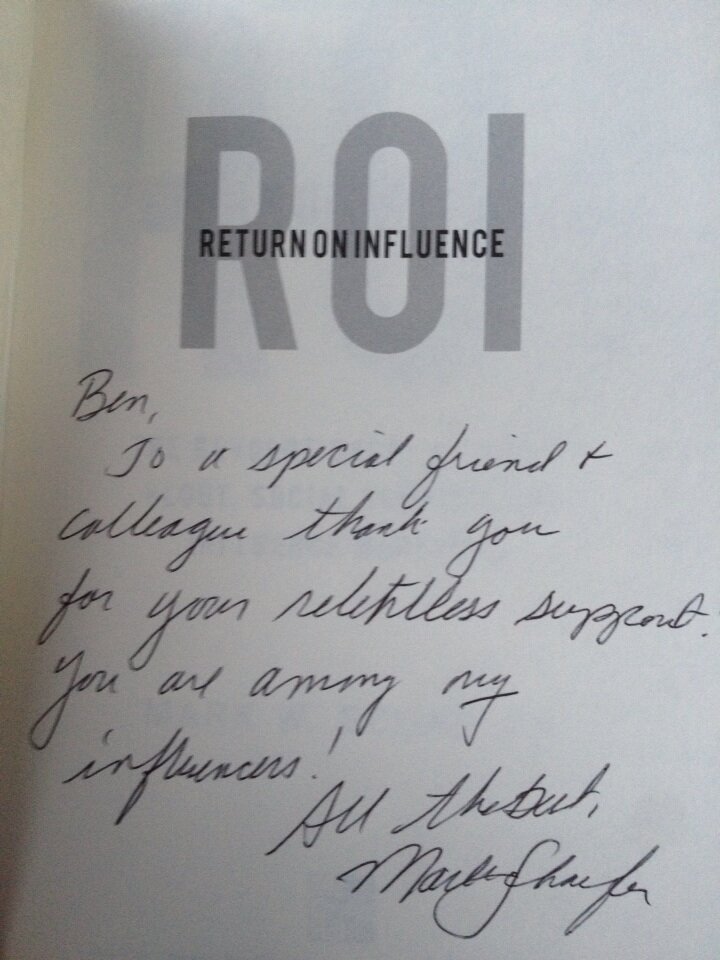 ROI
RETURN ON INFLUENCE
Ben,
To a special friend +
colleague thank you
for your relentless support.
You are among my
influencers!
All the Best,
Mark Schaefer